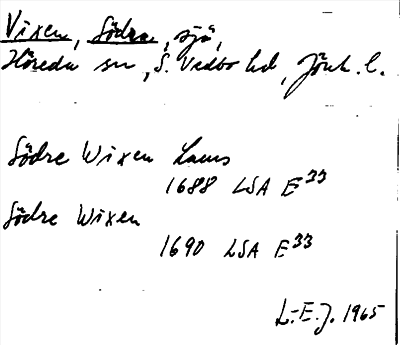 Vixen, Södra, sjö,
Höreda sn, S. Vedbo hd, Jönk. l.
Södre Wixen Laus
1688 LSA E33
Södre Wixen
1690 LSA E33
L-E.J. 1965